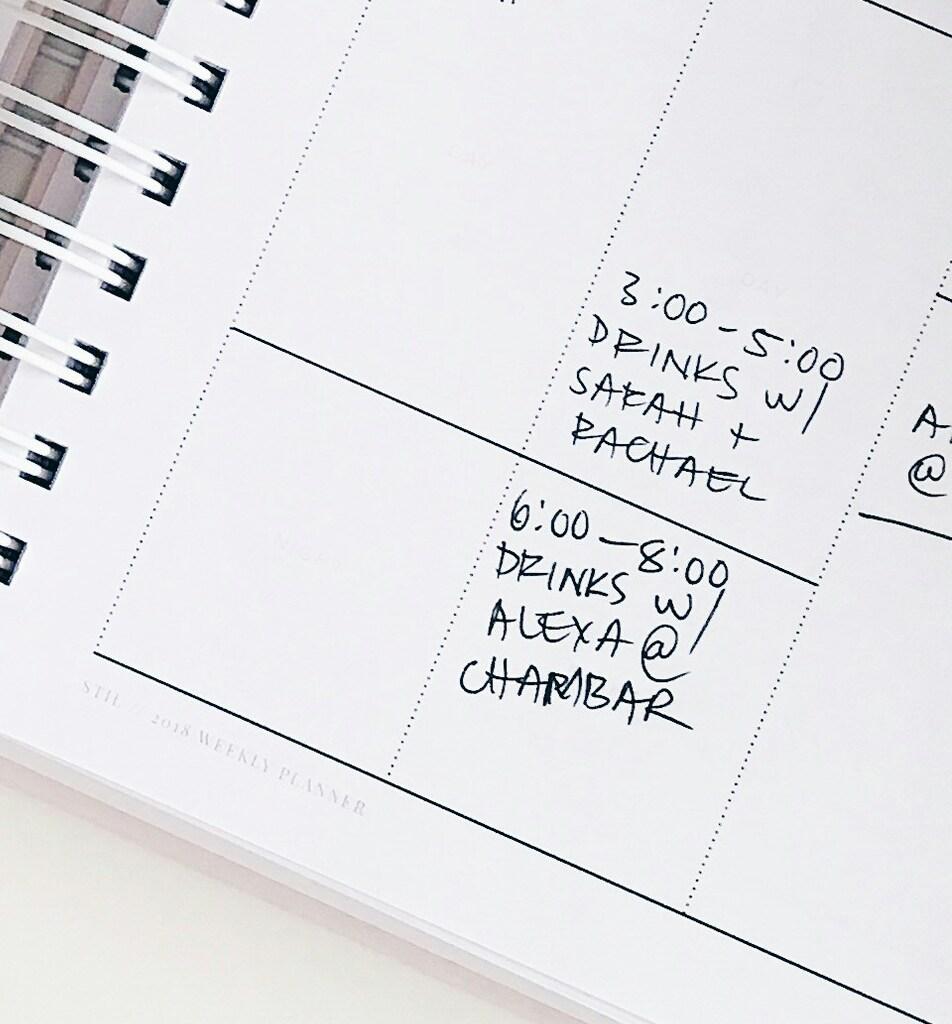 DAY
DAY
3:00 - 5:00
DRINKS W/
SARAH +
RACHAEL
A
@
6:00 - 8:00
DRINKS W/
ALEXA @
CHAMBAR
NIGHT
STIL // 2018 WEEKLY PLANNER